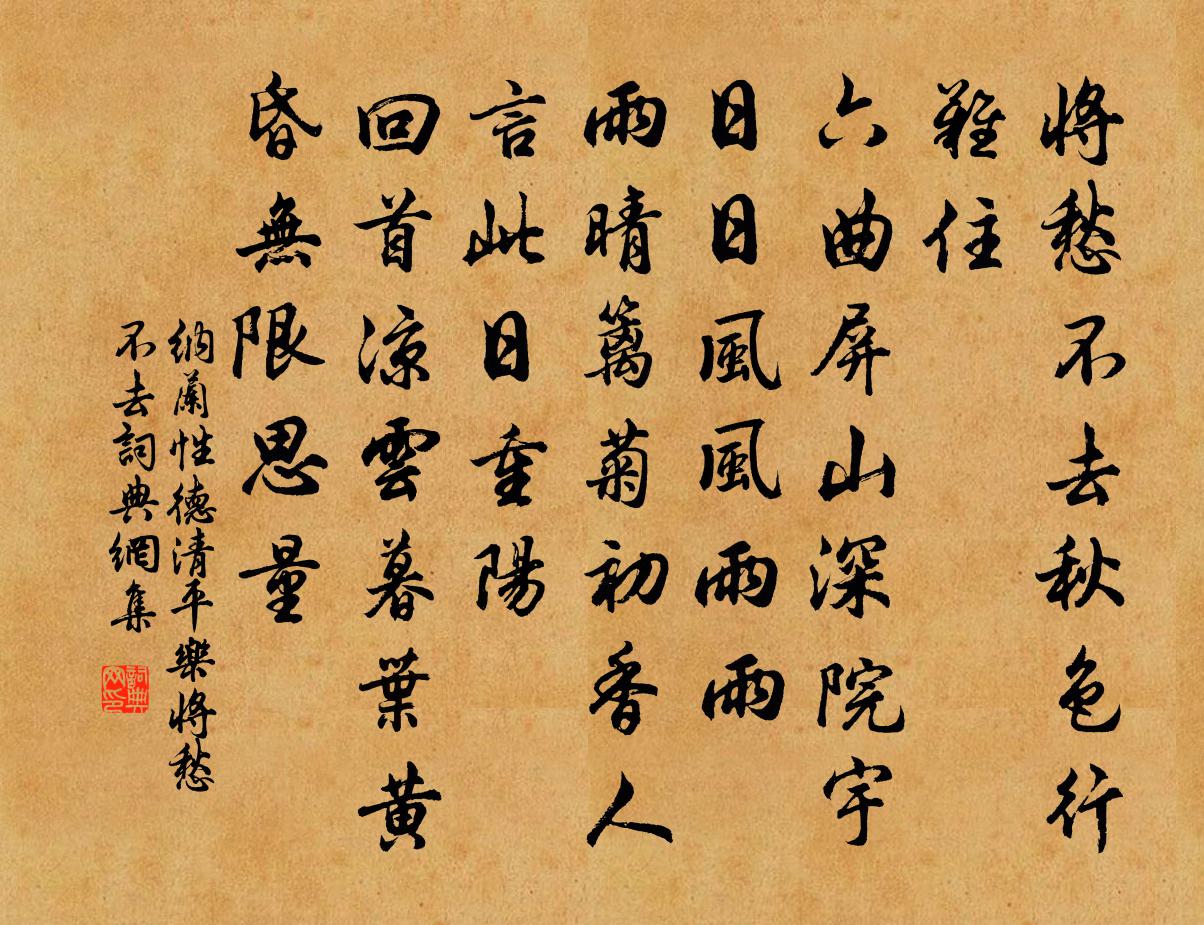 將愁不去秋色行
難住
六曲屏山深院宇
日日風風雨雨
雨晴籬菊初香人
言此日重陽
回首涼雲暮葉黃
昏無限思量
納蘭性德清平樂將愁
不去詞典網集
詞典
网印